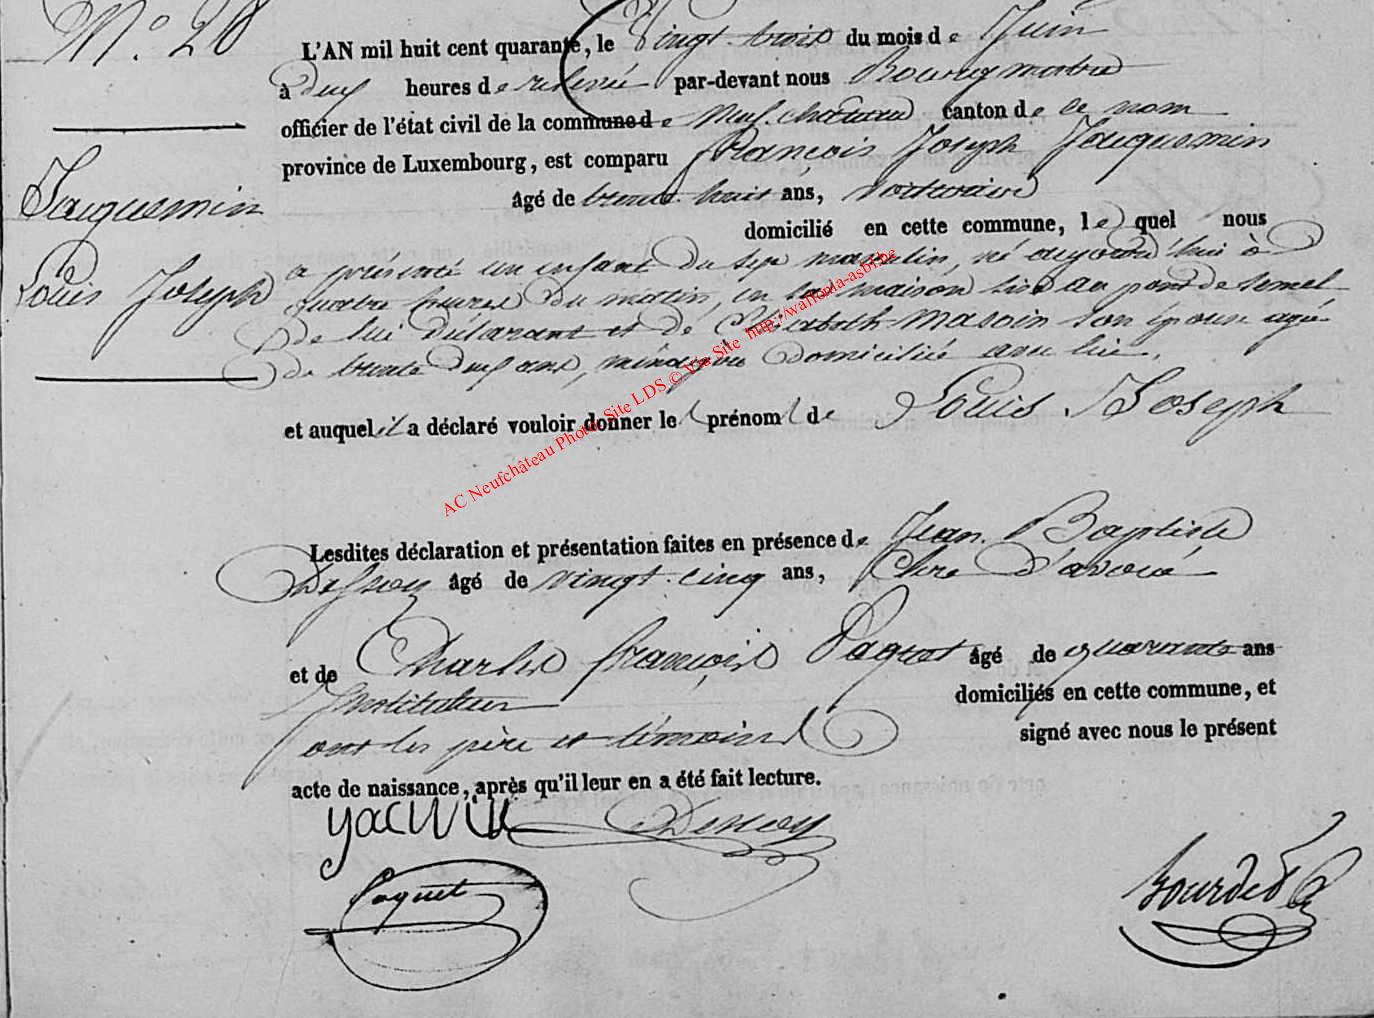 N.o 28
L'AN mil huit cent quarante, le Vingt trois du mois de Juin
à deux heures de relevée par-devant nous Bourgmestre
officier de l'état civil de la commune de Neufchateau canton de ce nom
province de Luxembourg, est comparu François Joseph Jacquemin
Jacquemin
âgé de trente huit ans,
domicilié en cette commune, lequel nous
Louis Joseph
a présenté un enfant du sexe masculin né aujourd'hui à
quatre heures du matin, en sa maison sise au pont de Semel
de lui déclarant et de Elisabeth Masoin son épouse agée
de trente deux ans, ménagère domiciliée avec lui.
et auquel il a déclaré vouloir donner le prénom de Louis Joseph
AC Neufchâteau Photo Site LDS © Via Site http://wallonia-asbl.be
Lesdites déclaration et présentation faites en présence de Jean Baptiste
Dessoy âgé de vingt-cinq ans, Clerc d'avoué
et de Charles François Paquet âgé de quarante ans
Instituteur domiciliés en cette commune, et
ont les père et témoins signé avec nous le présent
acte de naissance, après qu'il leur en a été fait lecture.
Dessoy
Paquet